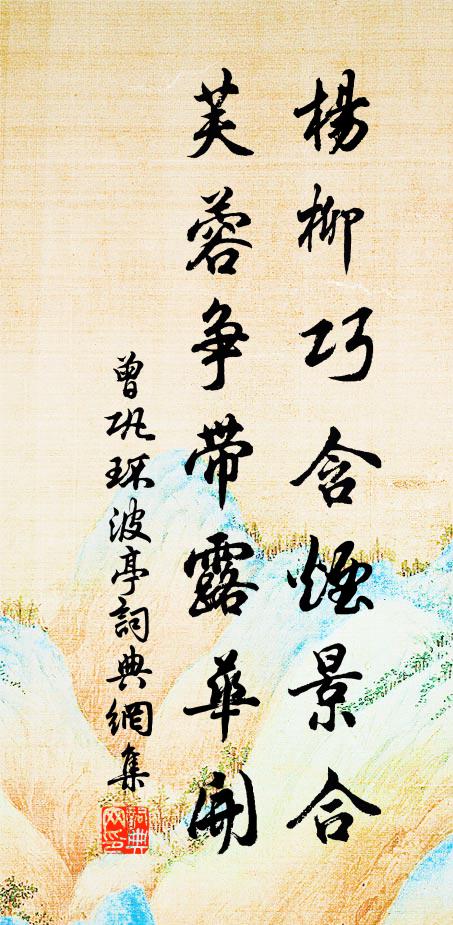 楊柳巧含煙景合
芙蓉争帶露華開
曾巩环波亭詞典網集
詞典
网印